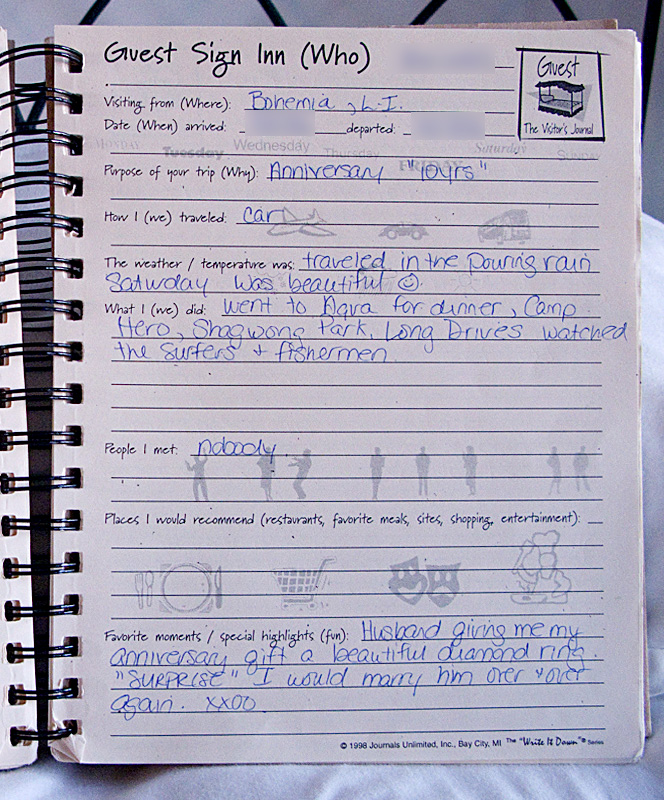 Guest Sign Inn (Who)
Guest
The Visitor's Journal
Visiting from (Where): Bohemia, L.I.
Date (When) arrived: departed:
MONDAY Tuesday Wednesday Thursday FRIDAY Saturday Sunday
Purpose of your trip (Why): Anniversary "10yrs"
How I (we) traveled: car
The weather / temperature was: traveled in the pouring rain
Saturday was beautiful ☺.
What I (we) did: went to Aqva for dinner, Camp
Hero, Shagwong Park, Long Drives watched
the surfers + fishermen
People I met: nobody
Places I would recommend (restaurants, favorite meals, sites, shopping, entertainment):
Favorite moments / special highlights (fun): Husband giving me my
anniversary gift a beautiful diamond ring.
"SURPRISE" I would marry him over + over
again. XXOO
© 1998 Journals Unlimited, Inc., Bay City, MI The "Write It Down"® Series